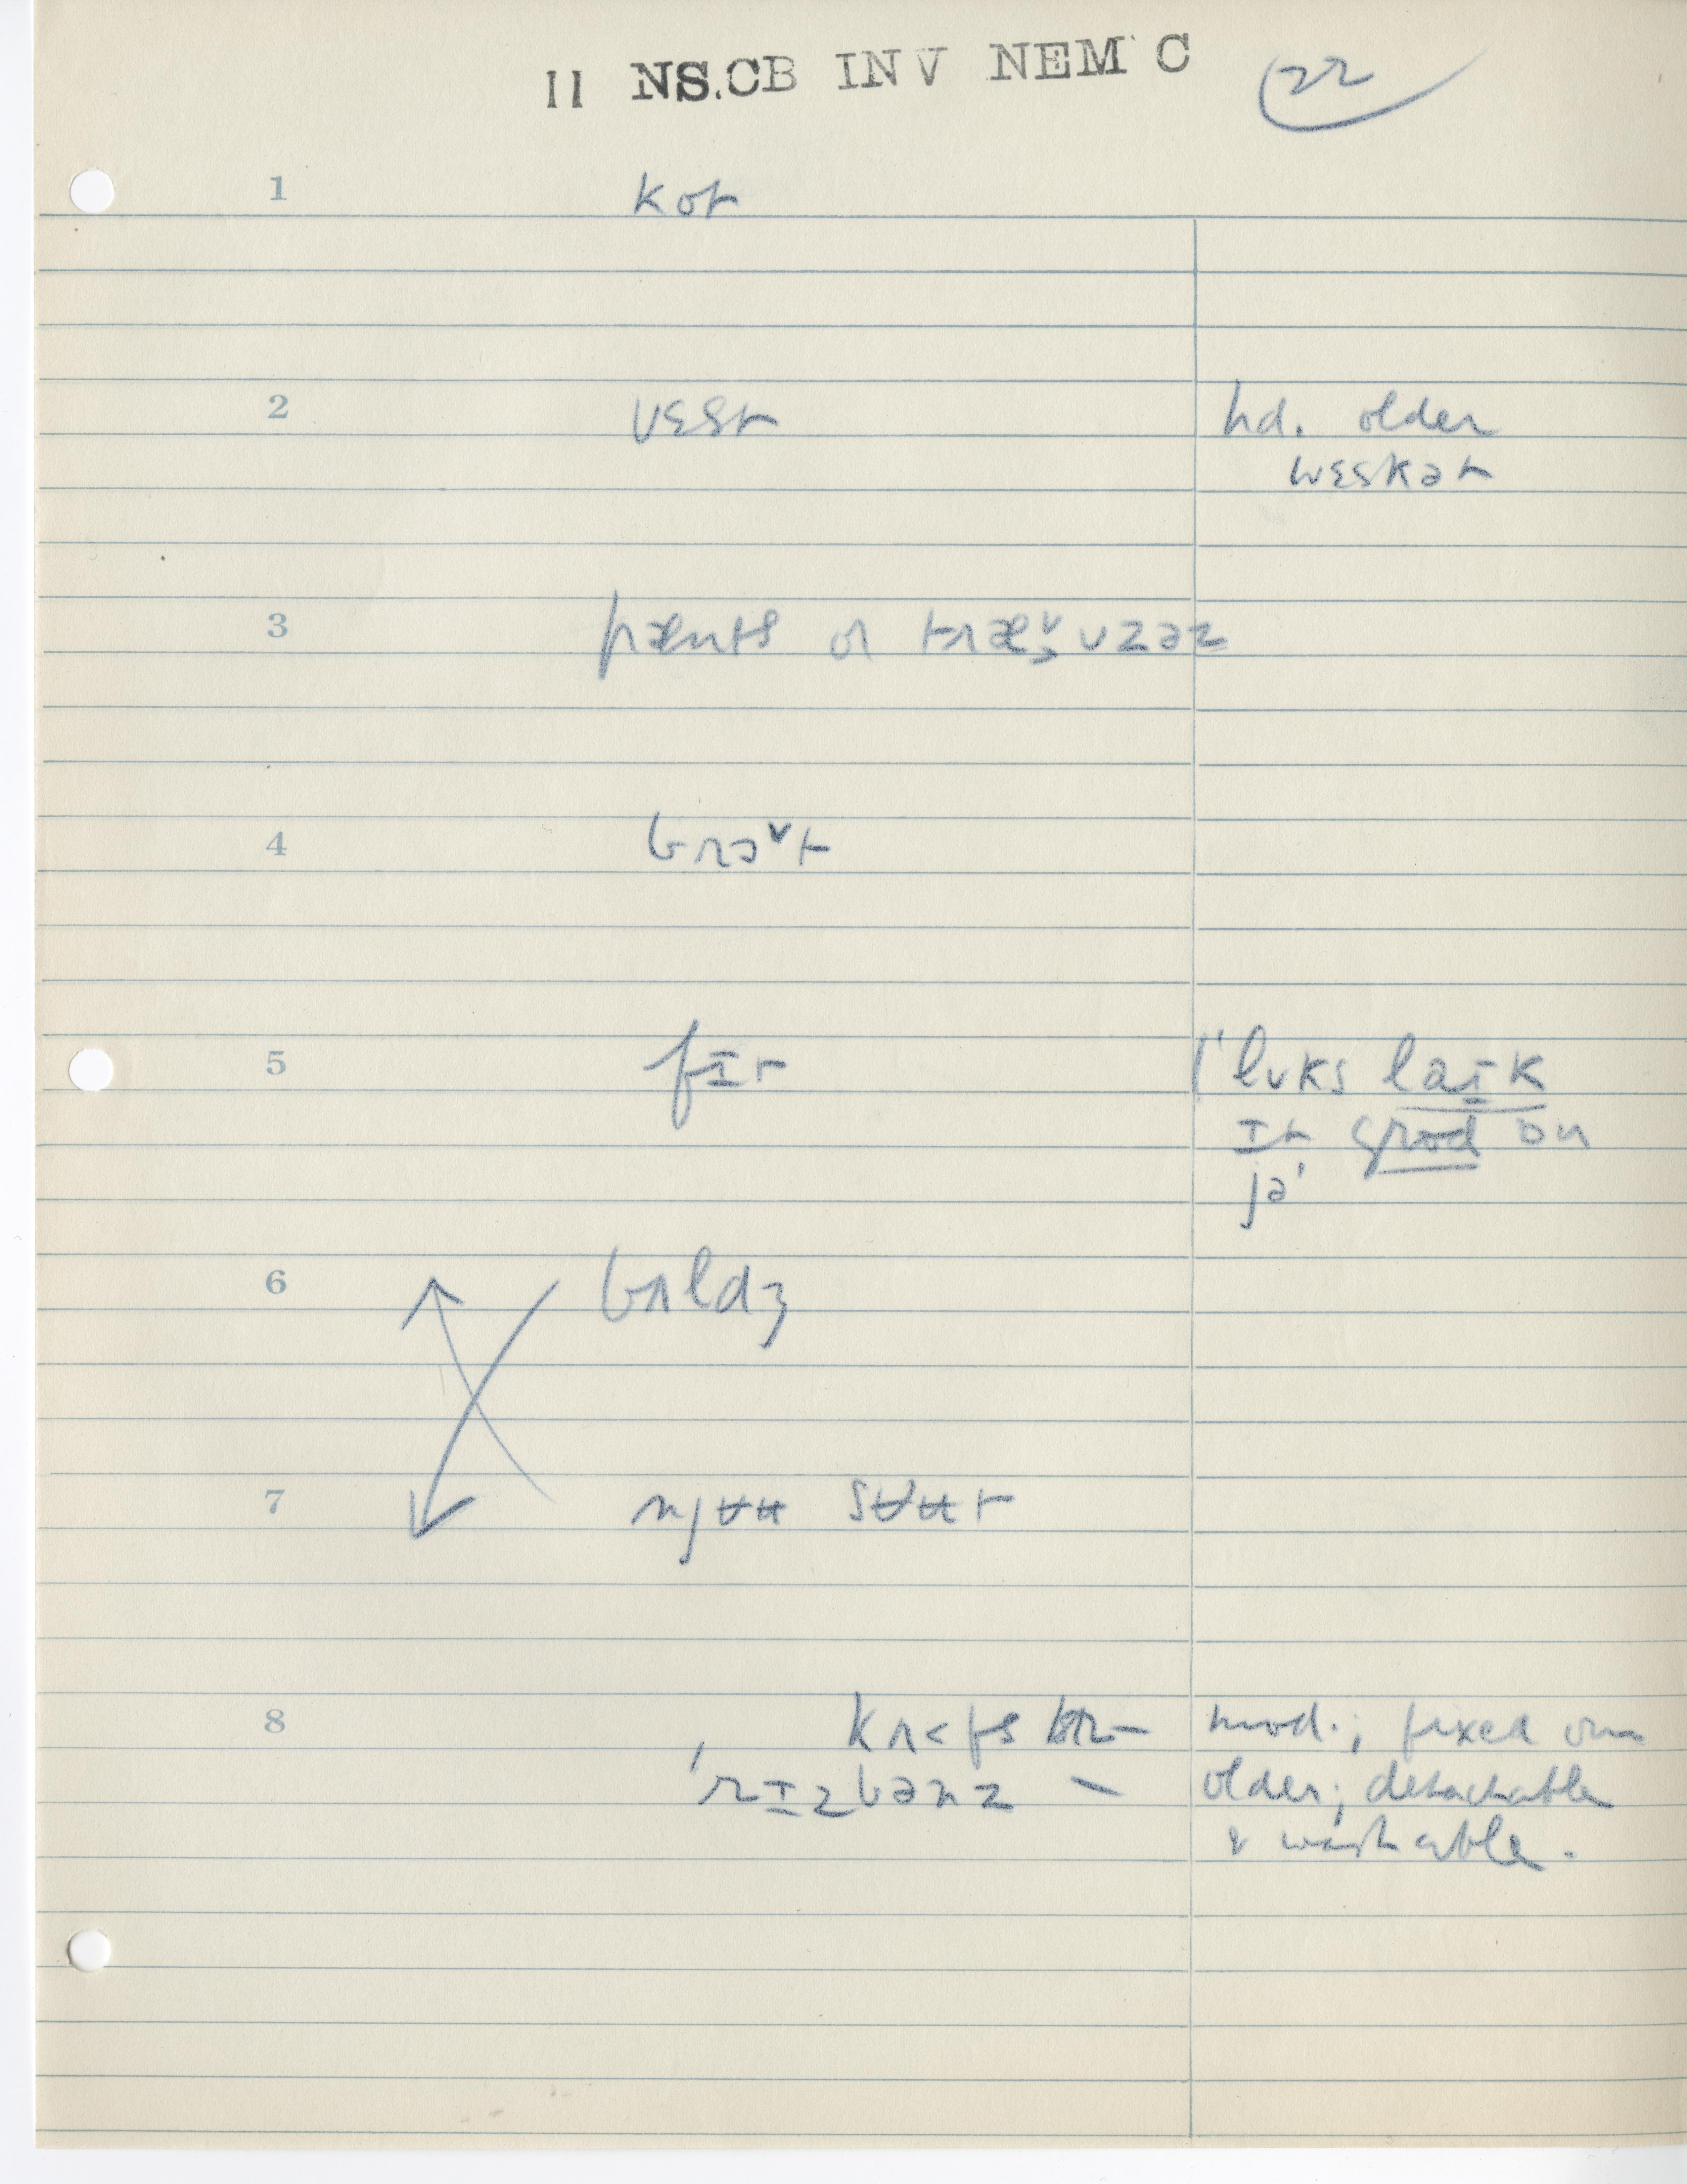 11 NS.CB INV NEM C 22
1 kot
2 vɛst hd. older
wɛskət
3 pænts or træ̬ʊzəz
4 brɔˇt
5 fɪt l'lʊks laɪk
ɪt grod ɒn
jə'
6 bʌldʒ
7 njʉʉ sʉʉt
8 kʌ<fs mod.; fixed on
'rɪzbənz older; detachable
& washable.